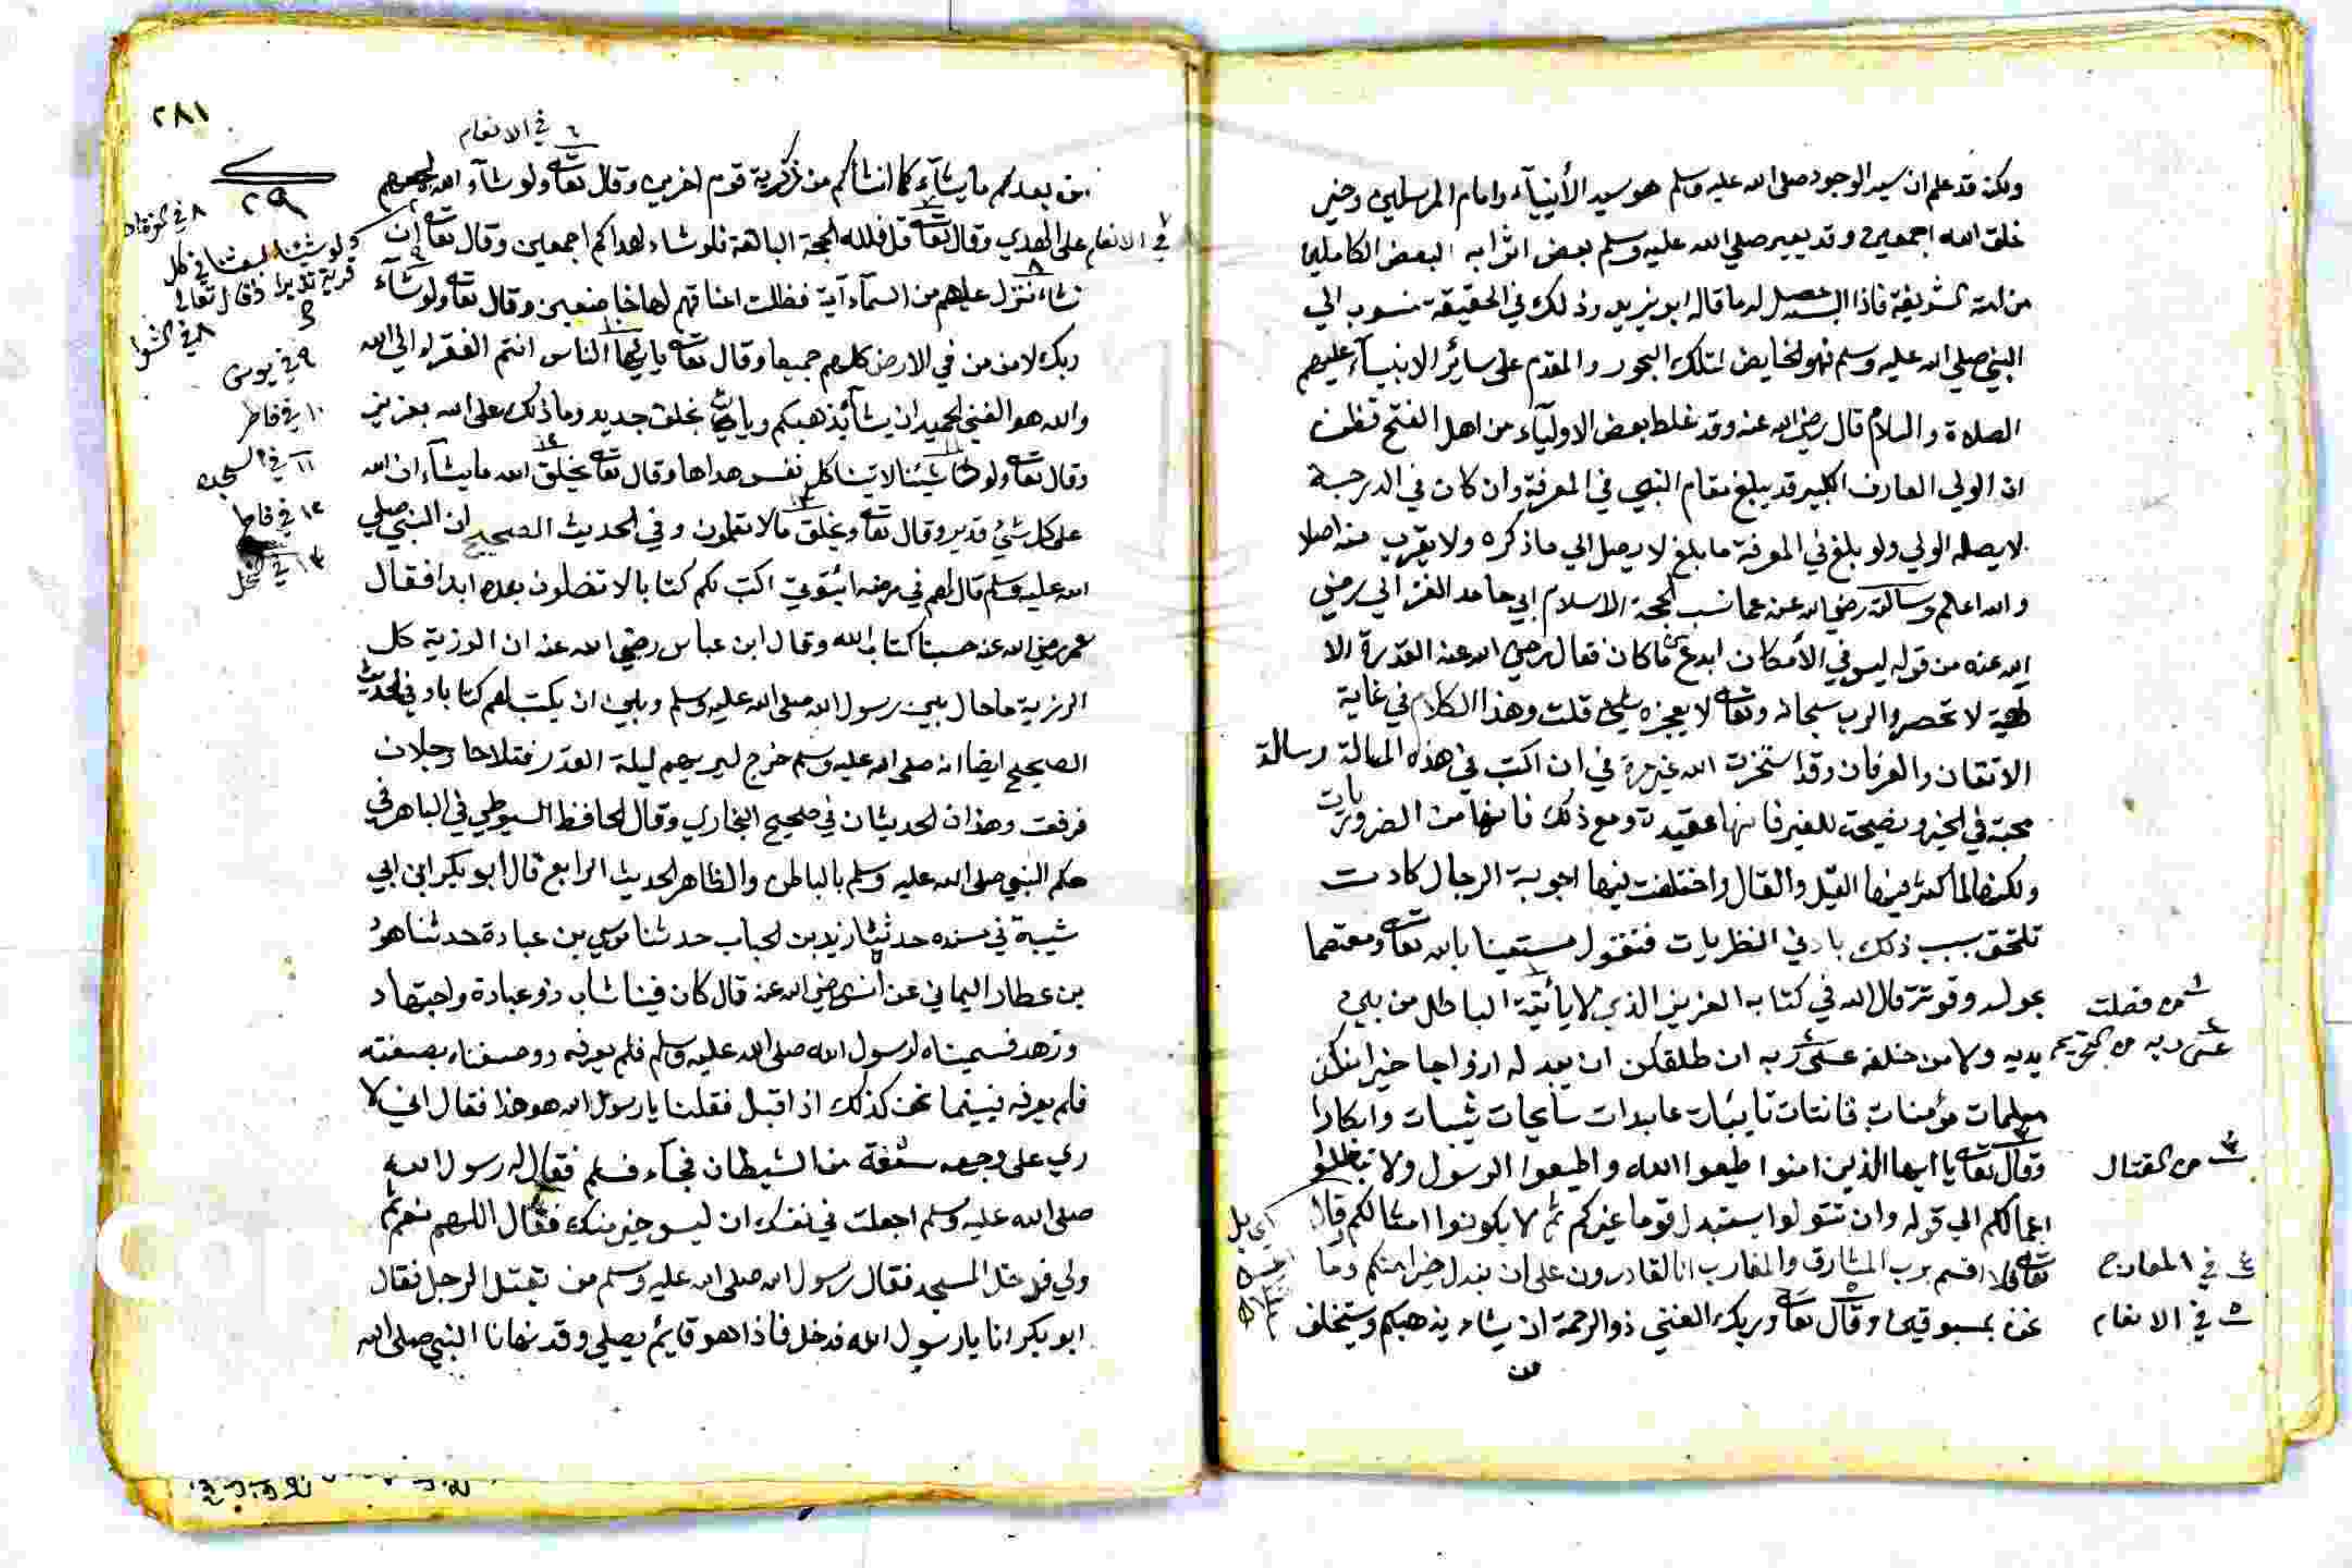 ولكن قد علم ان سيد الوجود صلى الله عليه وسلم هو سيد الأنبيآء وامام المرسلين وخير
خلق الله اجمعين وقد يعير صلي الله عليه وسلم بعض اثوابه البعض الكاملين
من امته الشريفة فاذا لبسه حصل له ما قاله ابو يزيد وذلك في الحقيقة منسوب الي
النبي صلي الله عليه وسلم فهو الخايض لتلك البحور والمقدم على سائر الانبيآء عليهم
الصلاة والسلام قال رضي الله عنه وقد غلط بعض الاوليآء من اهل الفتح فظن
ان الولي العارف الكبير قد يبلغ مقام النبي في المعرفة وان كان في الدرجة
لا يصله الولي ولو بلغ في المعرفة ما بلغ لا يصل الي ما ذكره ولا يقرب منه اصلا
والله اعلم وسالته رضي الله عنه عما نسب لحجة الاسلام ابي حامد الغزالي رضي
الله عنه من قوله ليس في الأمكان ابدع مما كان فقال رضي الله عنه القدرة الا
لهية لا تحصر والرب سبحانه وتعالى لا يعجزه شئ قلت وهذا الكلام في غاية
الاتقان والعرفان وقد استخرت الله غير مرة في ان اكتب في هذه المسالة رسالة
محبة في الخير ونصيحة للغير فانها عقيدة ومع ذلك فانها من الضروريات
ولكنها لما كثر فيها القيل والقال واختلفت فيها اجوبة الرجال كادت
تلتحق بسبب ذلك بادق النظريات فنقول مستعينا بالله تعالى ومعتصما
بحوله وقوته قال الله في كتابه العزيز الذي لا يأتيه الباطل من بين
يديه ولا من خلفه عسى ربه ان طلقكن ان يبدله ازواجا خيرا منكن
مسلمات مؤمنات قانتات تايبات عابدات سايحات ثيبات وابكارا
وقال تعالى يا ايها الذين امنوا اطيعوا الله واطيعوا الرسول ولا تبطلوا
اعمالكم الي قوله وان تتولوا يستبدل قوما غيركم ثم لا يكونوا امثالكم وقال
تعالى فلا اقسم برب المشارق والمغارب انا لقادرون على ان نبدل خيرا منكم وما
نحن بمسبوقين وقال تعالى وربك الغني ذو الرحمة ان يشاء يذهبكم ويستخلف
من
١ من فصلت
٢ عسى ربه من التحريم
٣ من القتال
٤ في المعارج
٥ في الانعام
٢٨١
٢٩
٦ في الانعام
من بعدكم ما يشآء كما انشاكم من ذرية قوم اخرين وقال تعالى ولو شآء الله لجمعهم
على الهدي وقال تعالى قل فلله الحجة البالغة فلو شاء لهداكم اجمعين وقال تعالى ان
نشاء ننزل عليهم من السمآء آية فظلت اعناقهم لها خاضعين وقال تعالى ولو شآء
ربك لامن من في الارض كلهم جميعا وقال تعالى يا ايها الناس انتم الفقراء الي الله
والله هو الغني الحميد ان يشأ يذهبكم ويات بخلق جديد وما ذلك على الله بعزيز
وقال تعالى ولو شئنا لاتينا كل نفس هداها وقال تعالى يخلق الله ما يشآء ان الله
على كل شئ قدير وقال تعالى ويخلق ما لا تعلمون وفي الحديث الصحيح ان النبي صلي
الله عليه وسلم قال لهم في مرضه ائتوني اكتب لكم كتابا لا تضلون بعده ابدا فقال
عمر رضي الله عنه حسبنا كتاب الله وقال ابن عباس رضي الله عنه ان الرزية كل
الرزية ما حال بين رسول الله صلى الله عليه وسلم وبين ان يكتب لهم كتابا وفي الحديث
الصحيح ايضا انه صلى الله عليه وسلم خرج ليريهم ليلة القدر فتلاحا رجلان
فرفعت وهذان الحديثان في صحيح البخاري وقال الحافظ السيوطي في الباهر في
حكم النبي صلى الله عليه وسلم بالباطن والظاهر الحديث الرابع قال ابو بكر ابن ابي
شيبة في مسنده حدثنا زيد بن الحباب حدثنا موسي بن عبادة حدثنا هود
بن عطار اليماني عن انس رضي الله عنه قال كان فينا شاب ذو عبادة واجتهاد
وزهد فسميناه لرسول الله صلى الله عليه وسلم فلم يعرفه ووصفناه بصفته
فلم يعرفه فبينما نحن كذلك اذ اقبل فقلنا يا رسول الله هو هذا فقال اني لا
ري على وجهه سفعة من الشيطان فجآء فسلم فقال له رسول الله
صلى الله عليه وسلم اجعلت في نفسك ان ليس خير منك فقال اللهم نعم ثم
ولي فدخل المسجد فقال رسول الله صلى الله عليه وسلم من يقتل الرجل فقال
ابو بكر انا يا رسول الله فدخل فاذا هو قايم يصلي وقد نهانا النبي صلى الله
٧ في الانعام
ولو شئنا لبعثنا في كل
قرية نذيرا وقال تعالى
٨ في الشعرا
٩ في يونس
١٠ في فاطر
١١ في السجده
١٢ في فاطر
١٣ في النحل